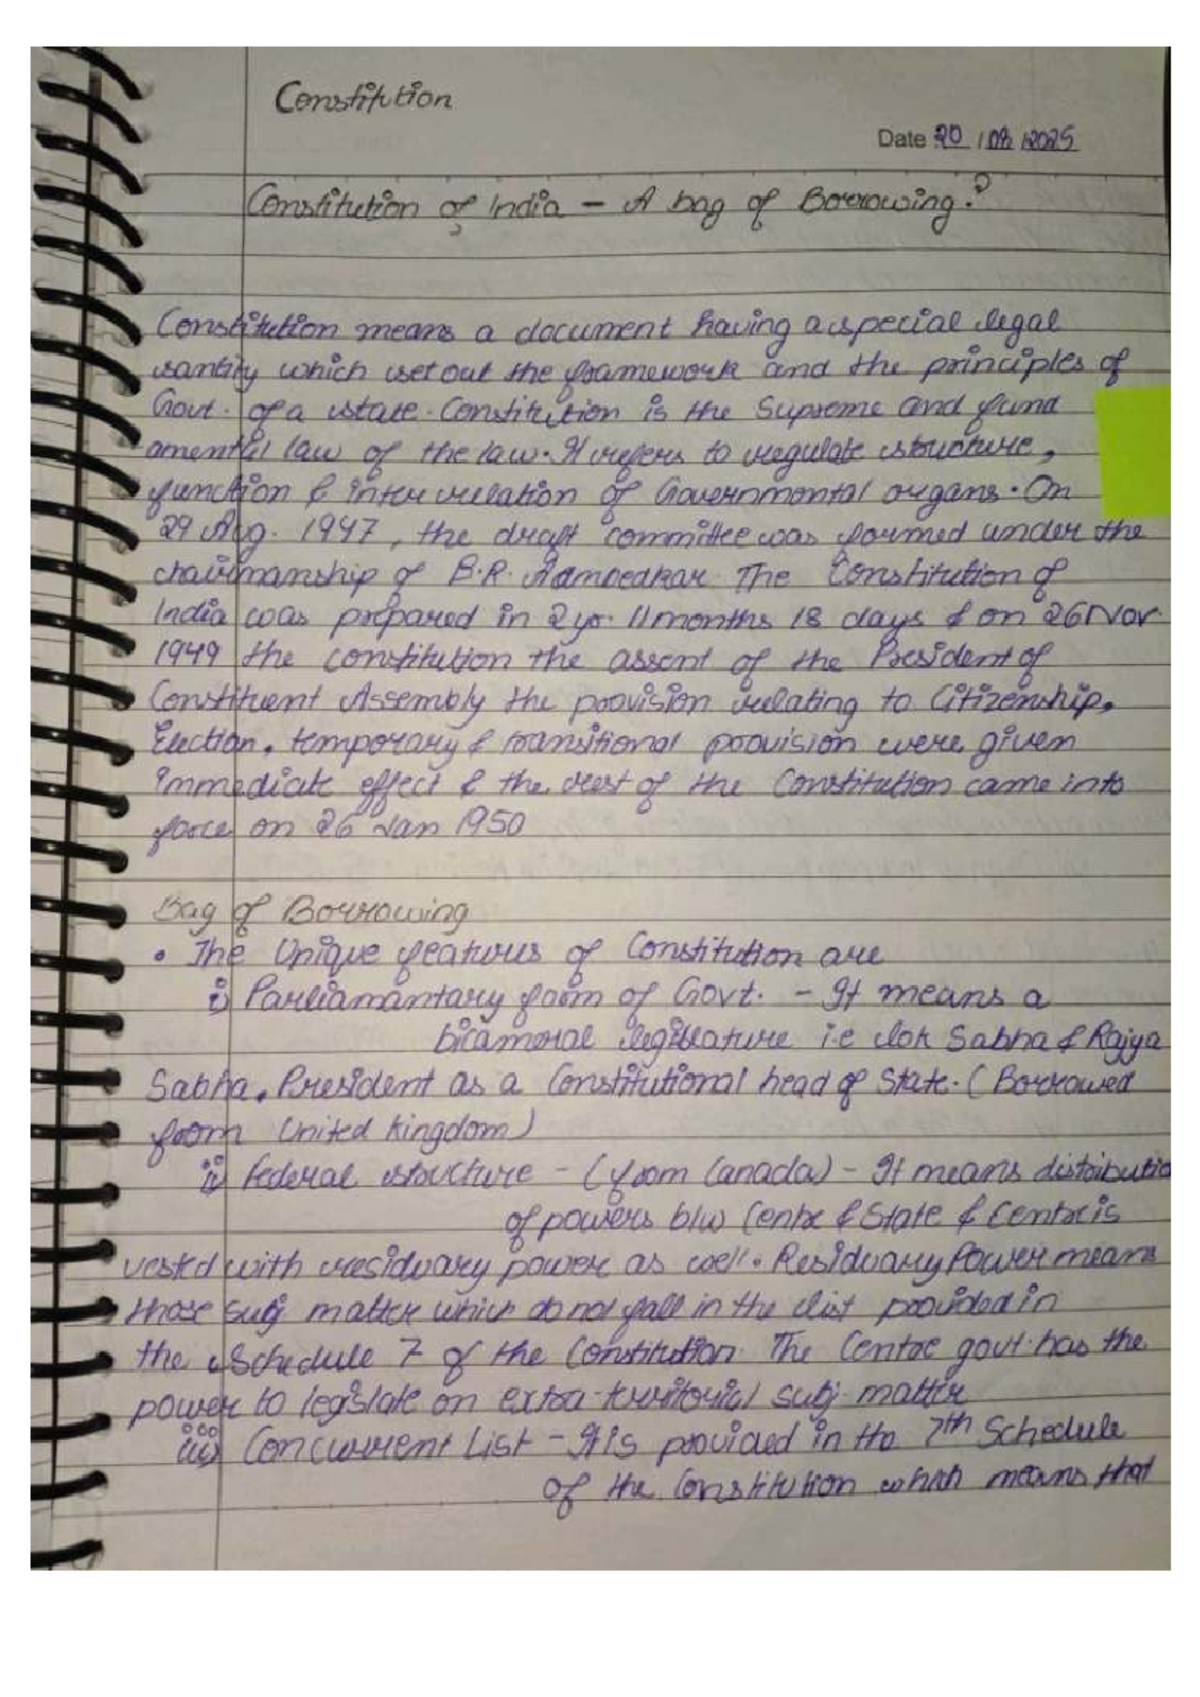 Constitution
Date 20 / 08 / 2025
Constitution of India - A bag of Borrowing?
Constitution means a document having a special legal
santity which set out the framework and the principles of
Govt. of a state. Constitution is the Supreme and fund
amental law of the law. It refers to regulate structure,
function & inter relation of Governmental organs. On
29 Aug. 1947, the draft committee was formed under the
chairmanship of B.R. Ambedkar. The Constitution of
India was prepared in 2 yr. 11 months 18 days & on 26 Nov.
1949 the constitution the assent of the President of
Constituent Assembly the provision relating to Citizenship,
Election, temporary & transitional provision were given
immediate effect & the rest of the Constitution came into
force on 26 Jan 1950
Bag of Borrowing
• The Unique features of Constitution are
i) Parliamantary form of Govt. - It means a
bicameral legislature i.e Lok Sabha & Rajya
Sabha, President as a Constitutional head of State. (Borrowed
from United Kingdom)
ii) federal structure - (from Canada) - It means distributio
of powers b/w Centre & State & Centre is
vested with residuary power as well. Residuary Power means
those subj matter which do not fall in the list provided in
the Schedule 7 of the Constitution. The Centre govt. has the
power to legislate on extra-territorial subj. matter
iii) Concurrent List - It is provided in the 7th Schedule
of the Constitution which means that